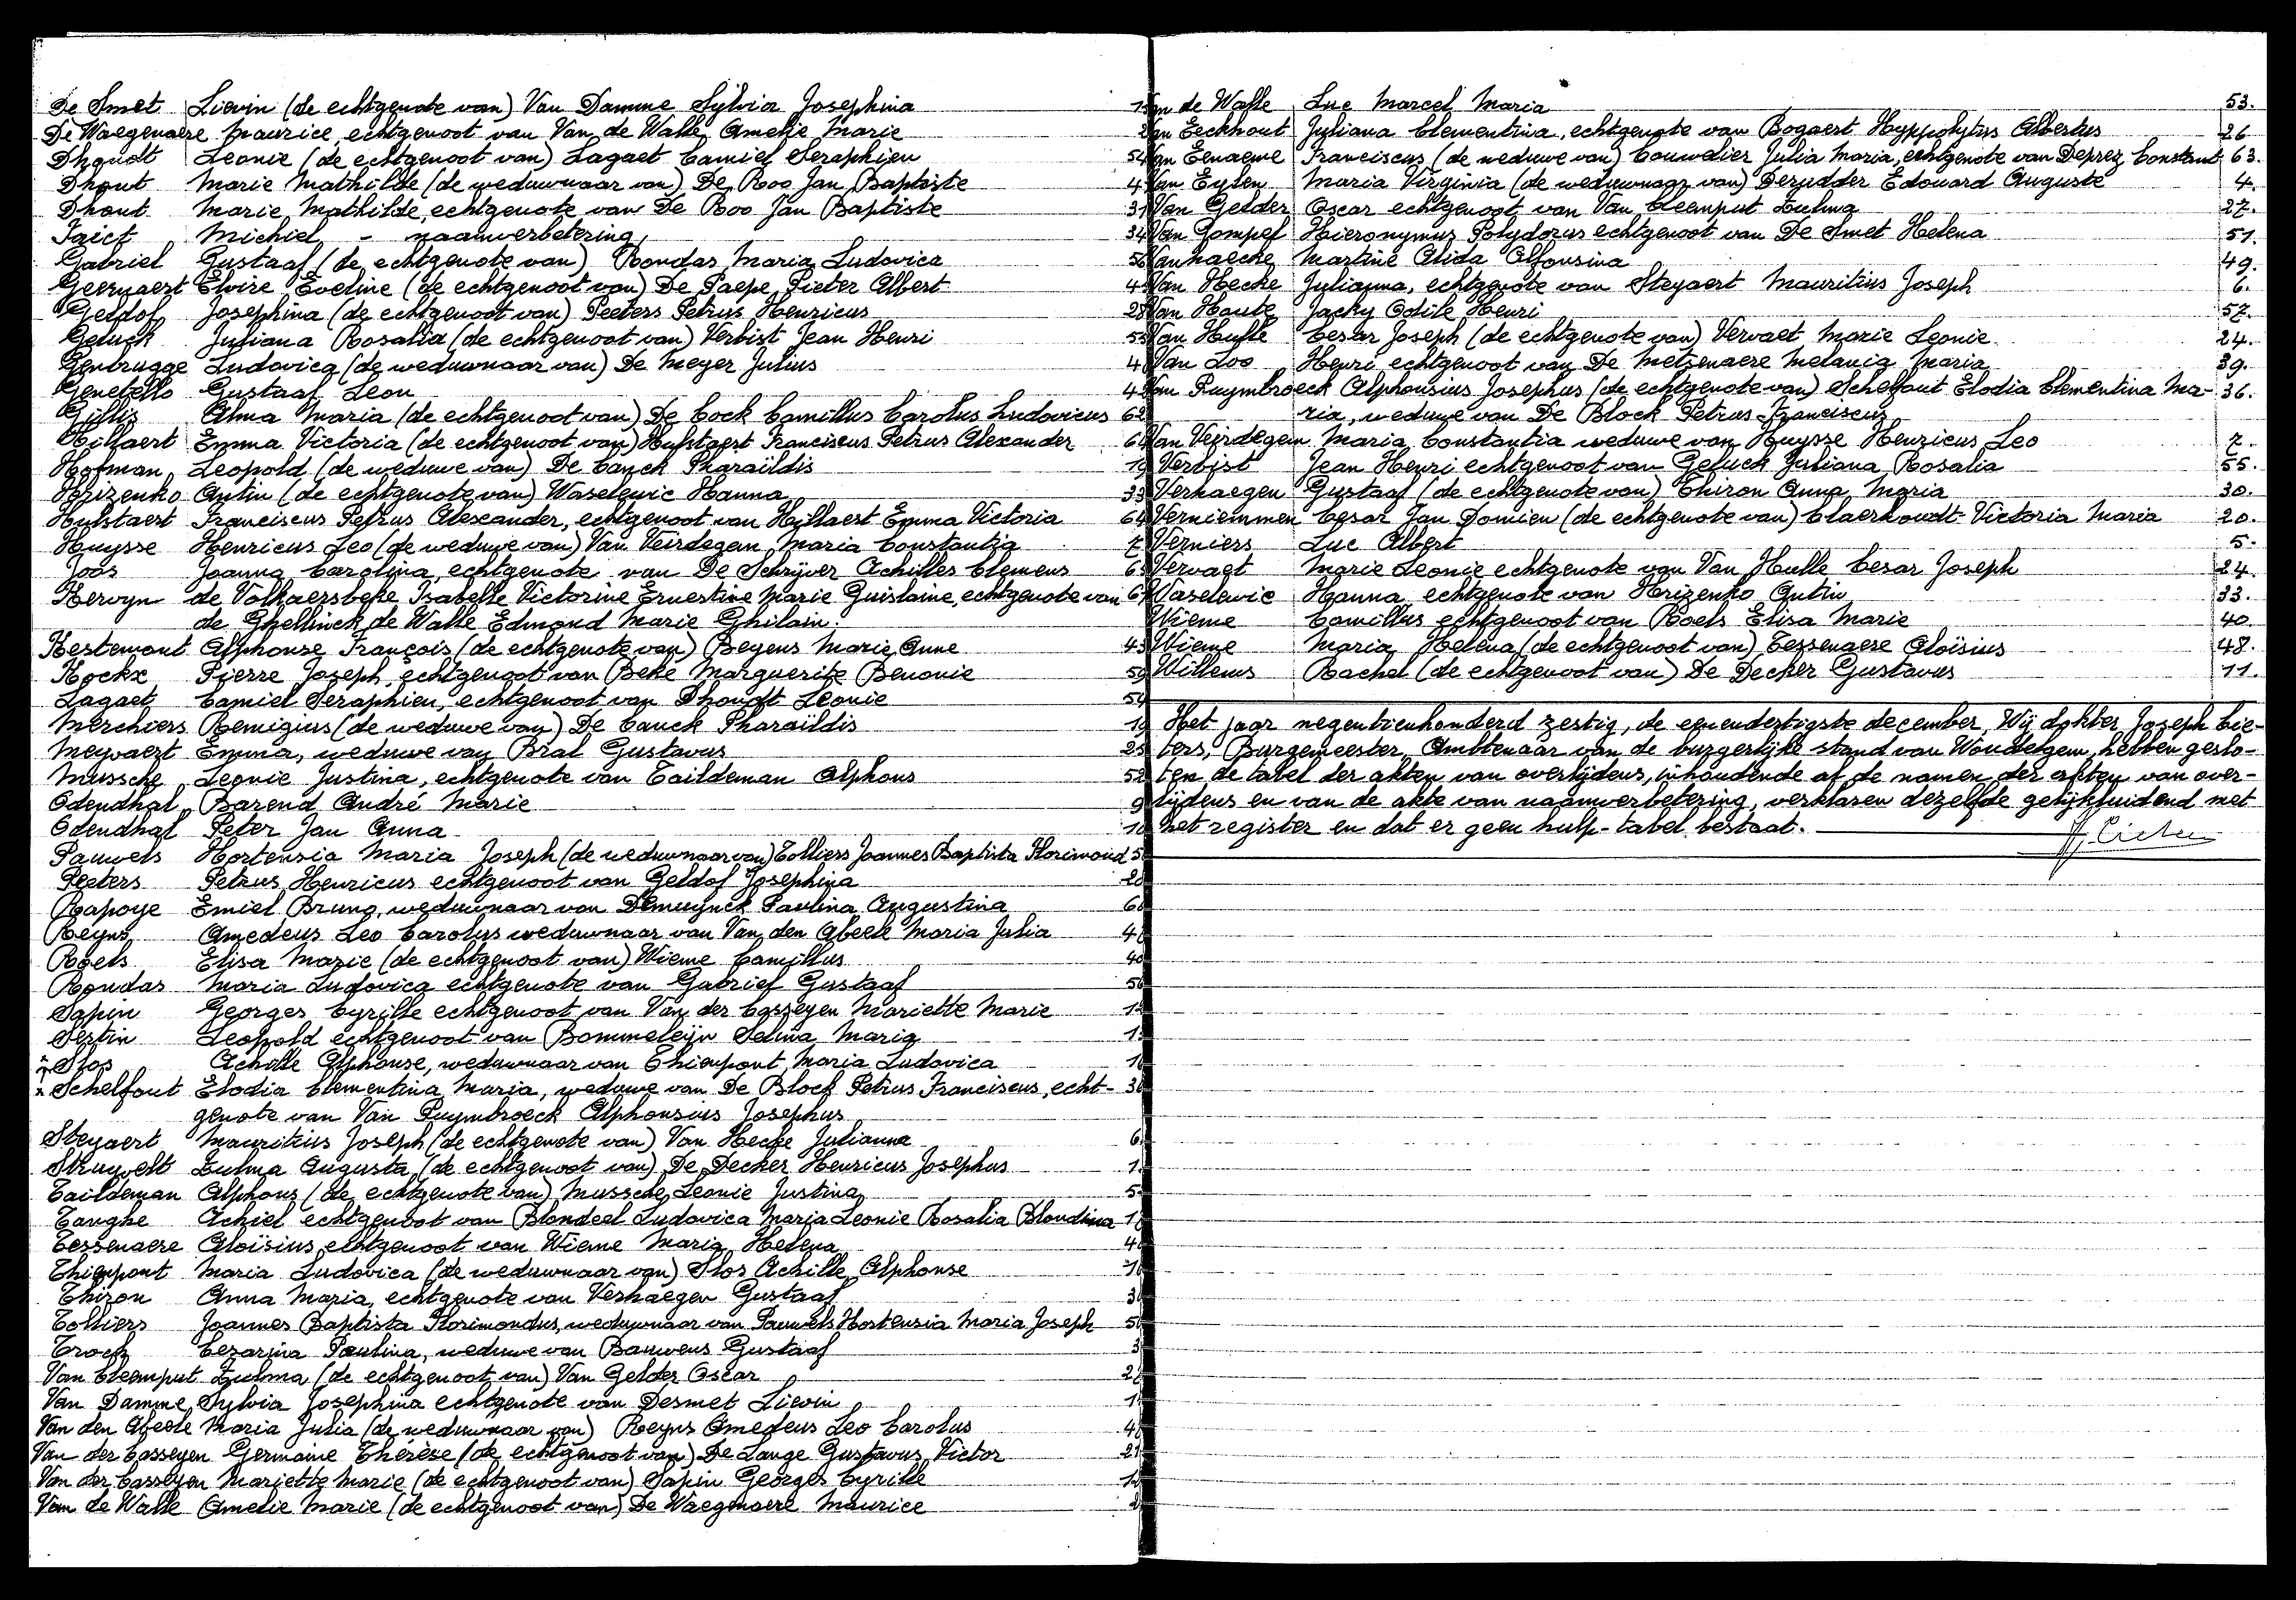 De Smet Lievin (de echtgenote van) Van Damme Sylvia Josephina
De Waegenaere Maurice, echtgenoot van Van de Walle Amelie Marie
Dhondt Leonie (de echtgenoot van) Lagaet Camiel Seraphien 54
Dhont Marie Mathilde (de weduwnaar van) De Roo Jan Baptiste
Dhont Marie Mathilde, echtgenote van De Roo Jan Baptiste 31
Faict Michiel - naamverbetering 34
Gabriel Gustaaf (de echtgenote van) Rondas Maria Ludovica
Geernaert Elvire Eveline (de echtgenoot van) De Paepe Pieter Albert
Geldof Josephina (de echtgenoot van) Peeters Petrus Henricus 28
Geluck Juliana Rosalia (de echtgenoot van) Verbist Jean Henri 55
Genbrugge Ludovica (de weduwnaar van) De Meyer Julius
Genetello Gustaaf Leon
Gillis Alma Maria (de echtgenoot van) De Cock Camillus Carolus Ludovicus
Hillaert Emma Victoria (de echtgenoot van) Hulstaert Franciscus Petrus Alexander
Hofman Leopold (de weduwe van) De Canck Pharaïldis 19
Hrizenko Antin (de echtgenote van) Waselewic Hanna 33
Hulstaert Franciscus Petrus Alexander, echtgenoot van Hillaert Emma Victoria
Huysse Henricus Leo (de weduwe van) Van Veirdegem Maria Constantia 7
Joos Joanna Carolina, echtgenote van De Schrijver Achilles Clemens
Kervyn de Volkaersbeke Isabelle Victorine Ernestine Marie Guislaine, echtgenote van
de Ghellinck de Walle Edmond Marie Ghilain.
Kestemont Alphonse François (de echtgenote van) Beyens Marie Anne
Kockx Pierre Joseph echtgenoot van Beke Marguerite Benonie
Lagaet Camiel Seraphien, echtgenoot van Dhondt Leonie 54
Merchiers Remigius (de weduwe van) De Canck Pharaïldis 19
Meyvaert Emma, weduwe van Bral Gustavus
Mussche Leonie Justina, echtgenote van Taildeman Alphons 52
Odendhal Barend André Marie 9
Odendhal Peter Jan Anna 10
Pauwels Hortensia Maria Joseph (de weduwnaar van) Tolliers Joannes Baptista Florimond
Peeters Petrus Henricus echtgenoot van Geldof Josephina
Rapoye Emiel Bruno, weduwnaar van Demuynck Paulina Augustina
Reyns Amedeus Leo Carolus weduwnaar van Van den Abeele Maria Julia
Roels Elisa Marie (de echtgenoot van) Wieme Camillus 40
Rondas Maria Ludovica echtgenote van Gabriel Gustaaf
Sapin Georges Cyrille echtgenoot van Van der Casseyen Mariette Marie
Sertin Leopold echtgenoot van Bommeleijn Selma Maria
Slos Achille Alphonse, weduwnaar van Thienpont Maria Ludovica
Schelfout Elodia Clementina Maria, weduwe van De Block Petrus Franciscus, echt-
genote van Van Puymbroeck Alphonsius Josephus
Steyaert Mauritius Joseph (de echtgenote van) Van Hecke Julianna 6
Struyvelt Zulma Augusta (de echtgenoot van) De Decker Henricus Josephus
Taildeman Alphons (de echtgenote van) Mussche Leonie Justina
Tanghe Achiel echtgenoot van Blondeel Ludovica Maria Leonie Rosalia Blondina
Tessenaere Aloïsius echtgenoot van Wieme Maria Helena
Thienpont Maria Ludovica (de weduwnaar van) Slos Achille Alphonse
Thiron Anna Maria, echtgenote van Verhaegen Gustaaf
Tolliers Joannes Baptista Florimondus, weduwnaar van Pauwels Hortensia Maria Joseph
Troch Cesarina Paulina, weduwe van Bauwens Gustaaf
Van Cleemput Zulma (de echtgenoot van) Van Gelder Oscar
Van Damme Sylvia Josephina echtgenote van Desmet Lievin
Van den Abeele Maria Julia (de weduwnaar van) Reyns Amedeus Leo Carolus
Van der Casseyen Germaine Thérèse (de echtgenoot van) De Lange Gustavus Victor 21
Van der Casseyen Mariette Marie (de echtgenoot van) Sapin Georges Cyrille
Van de Walle Amelie Marie (de echtgenoot van) De Waegenaere Maurice
Van de Walle Luc Marcel Maria 53.
Van Eeckhout Juliana Clementina, echtgenote van Bogaert Hyppolytus Albertus 26
Van Eenaeme Franciscus (de weduwe van) Couvelier Julia Maria, echtgenote van Deprez Constant 63.
Van Eylen Maria Virginia (de weduwnaar van) Derudder Edouard Auguste 4.
Van Gelder Oscar echtgenoot van Van Cleemput Zulma 27.
Van Gompel Hieronymus Polydorus echtgenoot van De Smet Helena 51.
Vanhaecke Martine Alida Alfonsina 49.
Van Hecke Julianna, echtgenote van Steyaert Mauritius Joseph 6.
Van Haute Jacky Odile Henri 57.
Van Hulle Cesar Joseph (de echtgenote van) Vervaet Marie Leonie 24.
Van Loo Henri echtgenoot van De Metsenaere Melania Maria 39.
Van Puymbroeck Alphonsius Josephus (de echtgenote van) Schelfaut Elodia Clementina Ma- 36.
ria, weduwe van De Block Petrus-Franciscus
Van Veirdegem Maria Constantia weduwe van Huysse Henricus Leo 7.
Verbist Jean Henri echtgenoot van Geluck Juliana Rosalia 55.
Verhaegen Gustaaf (de echtgenote van) Thiron Anna Maria 30.
Verniemmen Cesar Jan Domien (de echtgenote van) Claerhoudt Victoria Maria 20.
Verniers Luc Albert 5.
Vervaet Marie Leonie echtgenote van Van Hulle Cesar Joseph 24.
Waselewic Hanna echtgenote van Hrizenko Antin 33.
Wieme Camillus echtgenoot van Roels Elisa Marie 40.
Wieme Maria Helena (de echtgenoot van) Tessenaere Aloïsius 48.
Willems Rachel (de echtgenoot van) De Decker Gustavus 11.
Het jaar negentienhonderd zestig, de eenendertigste december, Wij dokter Joseph Cie-
ters, Burgemeester, Ambtenaar van de burgerlijke stand van Wondelgem, hebben geslo-
ten de tabel der akten van overlijdens, inhoudende al de namen der akten van over-
lijdens en van de akte van naamverbetering, verklaren dezelfde gelijkluidend met
het register en dat er geen hulp-tabel bestaat.